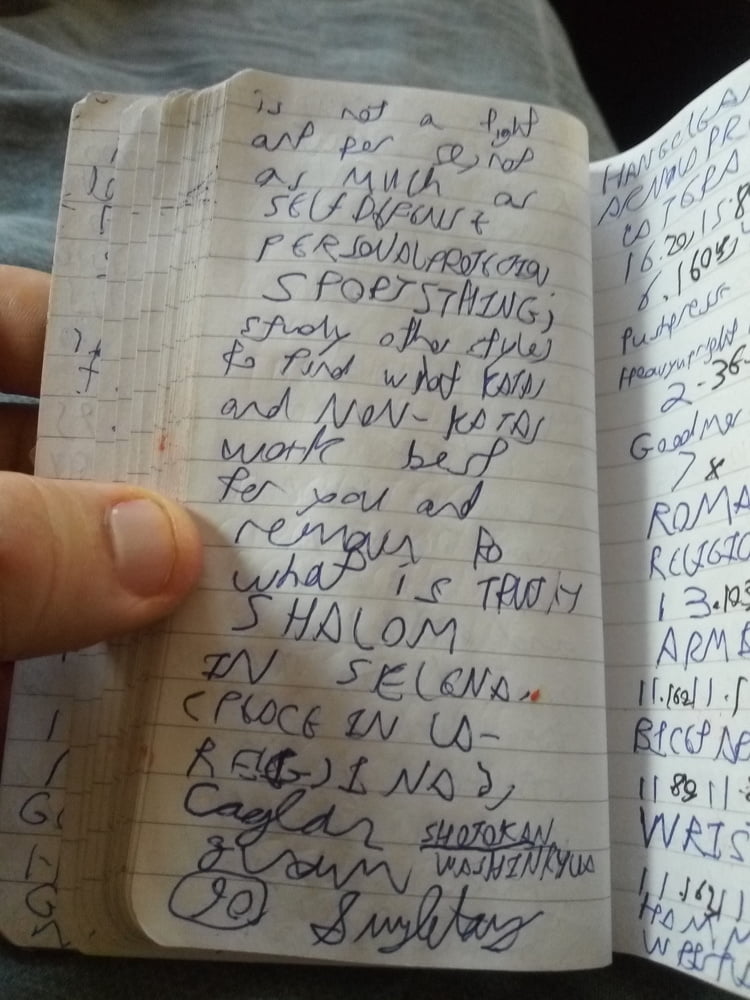 is not a fight
art per se, not
as MUCH as
SELFDEFENSE
PERSONALPROTECTION
SPORTSTHING;
study other styles
to find what KATAS
and NON-KATAS
work best
for you and
remain to
what is TRUTH
SHALOM
IN SELENA.
(PLACE IN LA-
REGINA),
Caglar
SHOTOKAN
WASHINRYUA
90 Singletary
HANGCLEA
ARNOLD PR
16.20, 15.8
6.160
Pushpress
Heavyupright
2-36
GoodMor
7 x
ROMA
RELIGIO
13.193
ARMB
11.162 11.
BICEP
11 89 11
WRIS
11.162 1